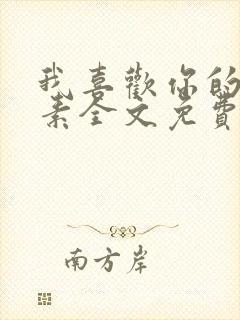 我喜歡你的
素全文免費
南方岸